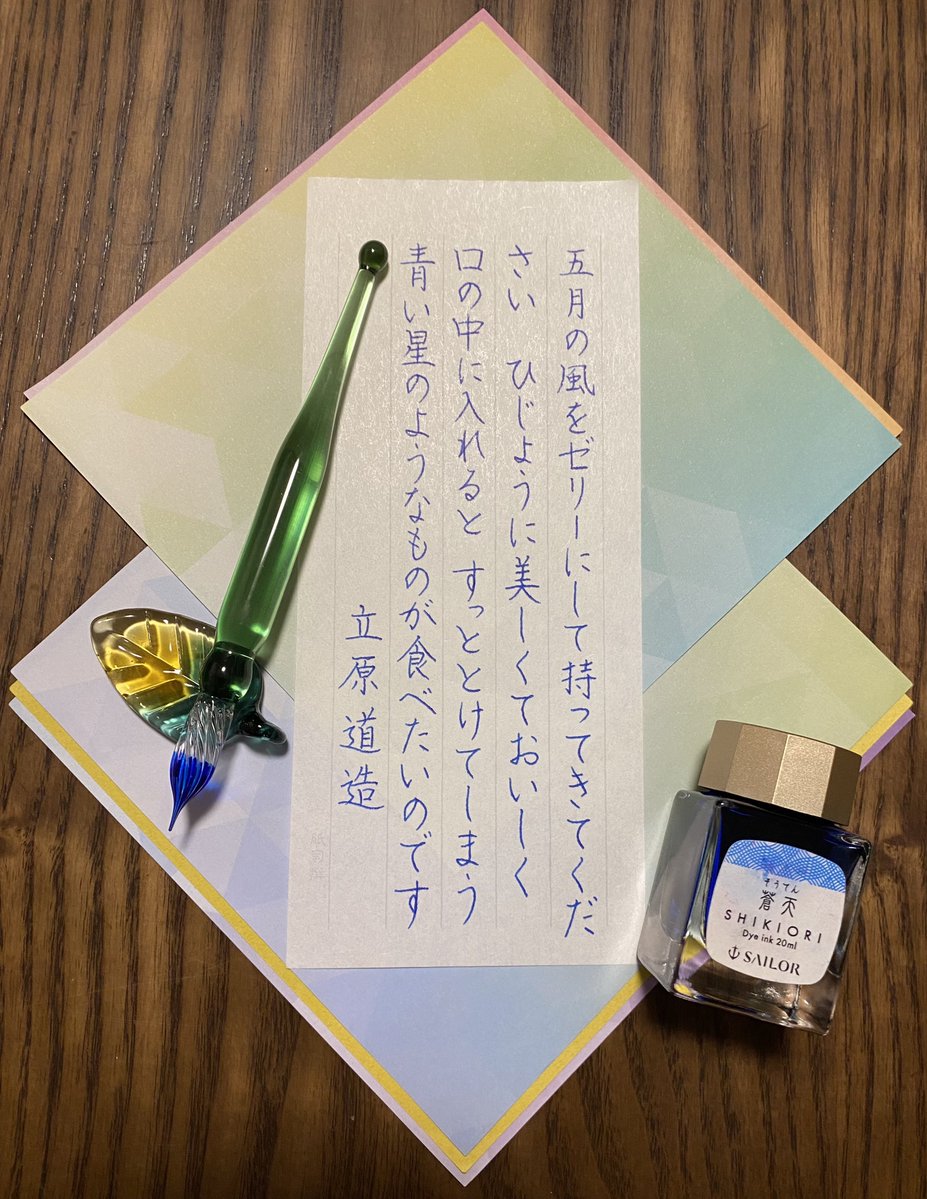 五月の風をゼリーにして持ってきてくだ
さい　ひじょうに美しくておいしく
口の中に入れると すっととけてしまう
青い星のようなものが食べたいのです
立原道造
そうてん
蒼天
SHIKIORI
Dye ink 20ml
SAILOR